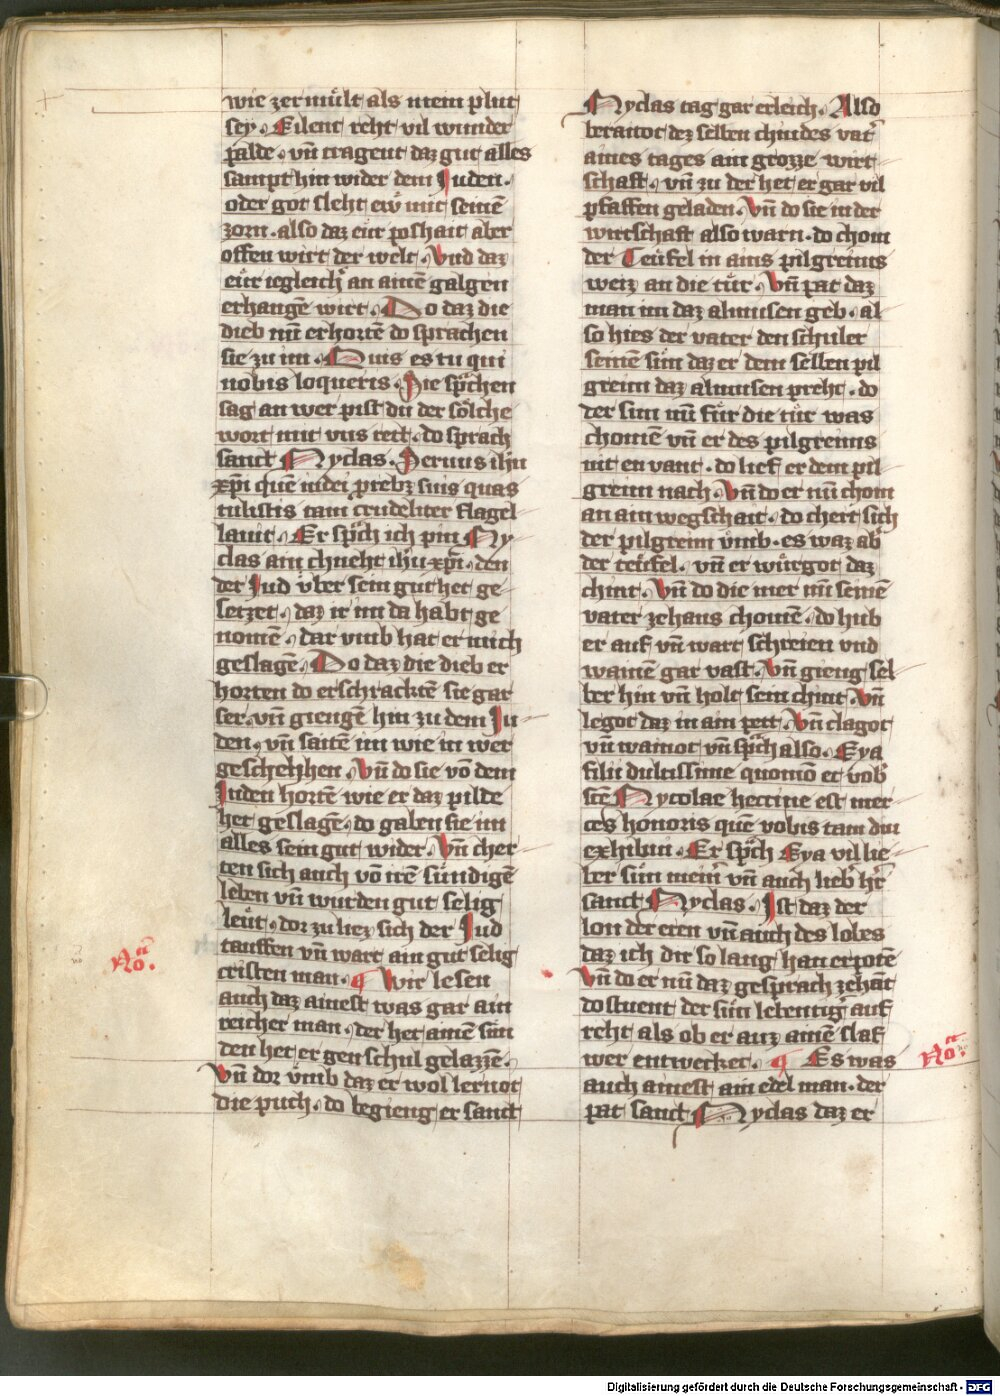 wie zermült als mein plut
sey · Eilent reht vil wunder
palde · vn̄ tragent daz gut alles
sampt hin wider dem Juden ·
oder got sleht ew̄ mit seinē
zorn · also daz eẅr poshait aber
offen wirt der welt · Vnd daz
eẅr iegleichͬ an ainē galgen
erhangē wirt · Do daz die
dieb nū erhortē do sprachen
sie zu im · Quis es tu qui
nobis loqueris · Sie sp̄chen
sag an wer pist du der sölche
wort mit vns rett · do sprach
sanct Nyclas · Seruus ih̄u
xp̄i quē iudeꝰ prebꝫ suis quas
tulistis tam crudeliter flagel
lauit · Er sp̄ch ich pin Ny
clas ain chneht ih̄u xp̄i · den
der Jud v̈ber sein gut het ge
setzet · daz ir im da habt ge
nomē · dar vmb hat er mich
geslagē · Do daz die dieb er
horten do erschracktē sie gar
ser · vn̄ giengē hin zu dem Ju
den · vn̄ saitē im wie in wer
geschehhen · Vn̄ do sie vō dem
Juden hortē wie er daz pilde
het geslagē · do gaben sie im
alles sein gut wider · Vn̄ cher
ten sich auch vō irē sündigē
leben vn̄ wurden gut selig
leüt · dor zu liez sich der Jud
tauffen vn̄ wart ain gut selig
cristen man · ¶ Wir lesen
auch daz ainest was gar ain
reicher man · der het ainē sün
den het er gen schul gelazzē ·
Vn̄ dor v̈mb daz er wol lernot
die puch · do begieng er sanct
Noͣ ·
Nyclas tag gar erleich · Also
beraitot dez selben chindes vatͬ
aines tages ain grozze wirt
schaft · vn̄ zu der het er gar vil
pfaffen geladen · Vn̄ do sie in der
wirtschaft also warn · do chom
der Teüfel in ains pilgreims
weiz an die tür · Vn̄ pat daz
man im daz almusen geb · al
so hies der vater den schuler
seinē sün daz er dem selben pil
greim daz almusen preht · do
der sün nū für die tür was
chomē vn̄ er des pilgreims
nit en vant · do lief er dem pil
greim nach · Vn̄ do er nū chom
an ain wegschait · do chert sich
der pilgreim vmb · es waz abͬ
der teüfel · vn̄ er würgot daz
chint · Vn̄ do die mer nū seinē
vater zehaus chomē · do hub
er auf vn̄ wart schreien vnd
wainē gar vast · Vn̄ gieng sel
ber hin vn̄ holt sein chint · Vn̄
legot daz in ain pett · Vn̄ clagot
vn̄ wainot vn̄ sp̄ch also · Eya
fili dulcissime quomō et vobͬ
scē Nycolae heccine est mer
ces honoris quē vobis tam diu
exhibui · Er sp̄ch Eya vil lie
ber sün meinͬ vn̄ auch liebͬ hͬr
sanct Nyclas · Jst daz der
lon der eren vn̄ auch des lobes
daz ich dir so lang han erpotē
Vn̄ do er nū daz gesprach zehāt
do stuent der sün lebentigͬ auf
reht als ob er auz ainē slaf
wer entwecket · ¶ Es was
auch ainest ain edel man · der
pat sanct Nyclas daz er
Noͣ ·
Digitalisierung gefördert durch die Deutsche Forschungsgemeinschaft - DFG